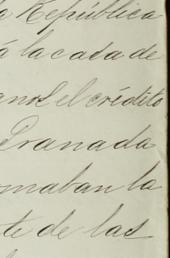 República
á la casa de
el crédito
Granada
maban la
te de las